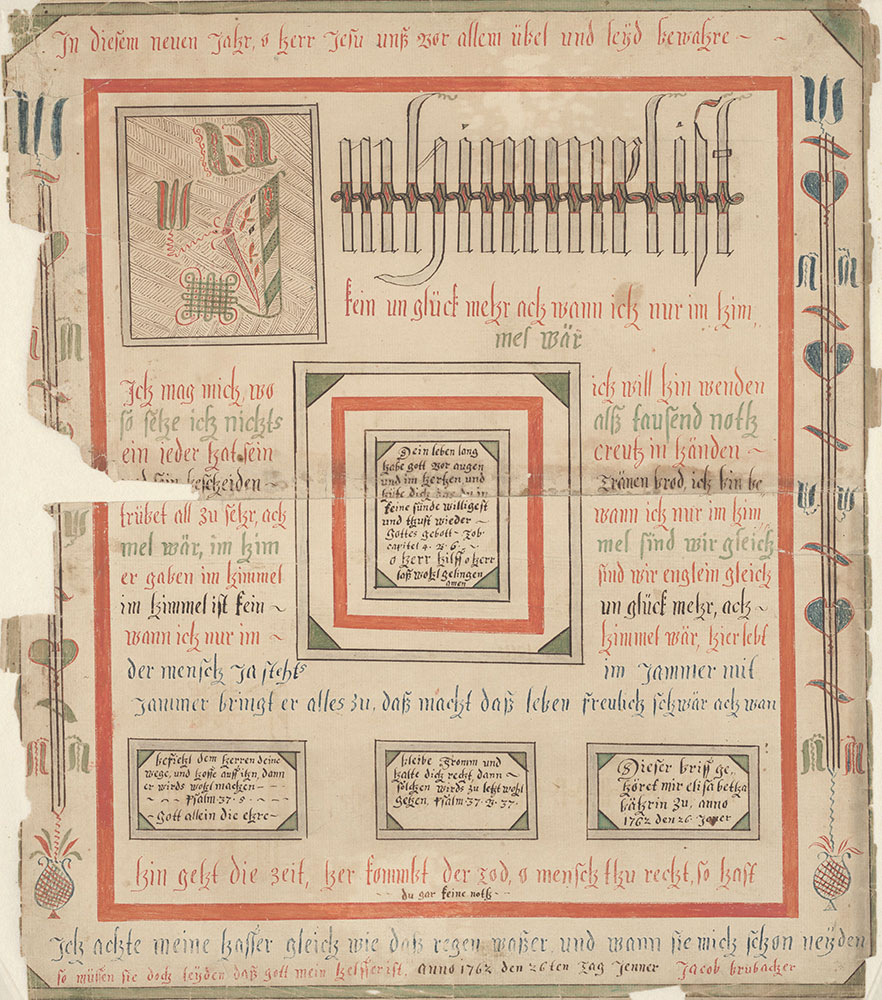 In diesem neuen Jahr, o herr Jesu unß vor allem übel und leyd bewahre ~ ~
Im himmel ist
kein un glück mehr ach wann ich nur im him
mel wär
Ich mag mich, wo ich will hin wenden
so sehe ich nichts alß tausend noth
ein jeder hat sein creutz in händen ~
sin bescheiden ~ Tränen brod, ich bin be
trübet all zu sehr, ach wann ich nur im him
mel wär, im him mel sind wir gleich
er gaben im himmel sind wir englein gleich
im himmel ist kein ~ un glück mehr, ach ~
wann ich nur im ~ himmel wär, hier lebt
der mensch ja stehts im Jammer mit
Jammer bringt er alles zu, daß macht daß leben freulich schwär ach wan
Dein leben lang
habe gott vor augen
und im hertzen und
hüte dich das du in
keine sünde willigest
und thust wieder ~
Gottes gebott ~ Tob.
capitel 4. v. 6. ~
o herr hilff o herr
laß wohl gelingen
amen
befiehl dem herren deine
wege, und hoffe auff ihn, dann
er wirds wohl machen - - -
~ ~ ~ Psalm. 37. 5 ~ ~ ~
~ Gott allein die ehre ~
bleibe Fromm und
halte dich recht, dann ~
solchen wirds zu letzt wohl
gehen, Psalm. 37. v. 37.
Dieser briff ge,
höret mir elisa betha
bährin zu, anno
1762 den 26. Jener
hin geht die zeit, her kommbt der tod, o mensch thu recht, so hast
~ du gar keine noth ~
Ich achte meine hasser gleich wie daß regen waßer, und wann sie mich schon neyden
so müßen sie doch leyden daß gott mein helffer ist, anno 1762 den 26ten Tag Jenner Jacob brubacher